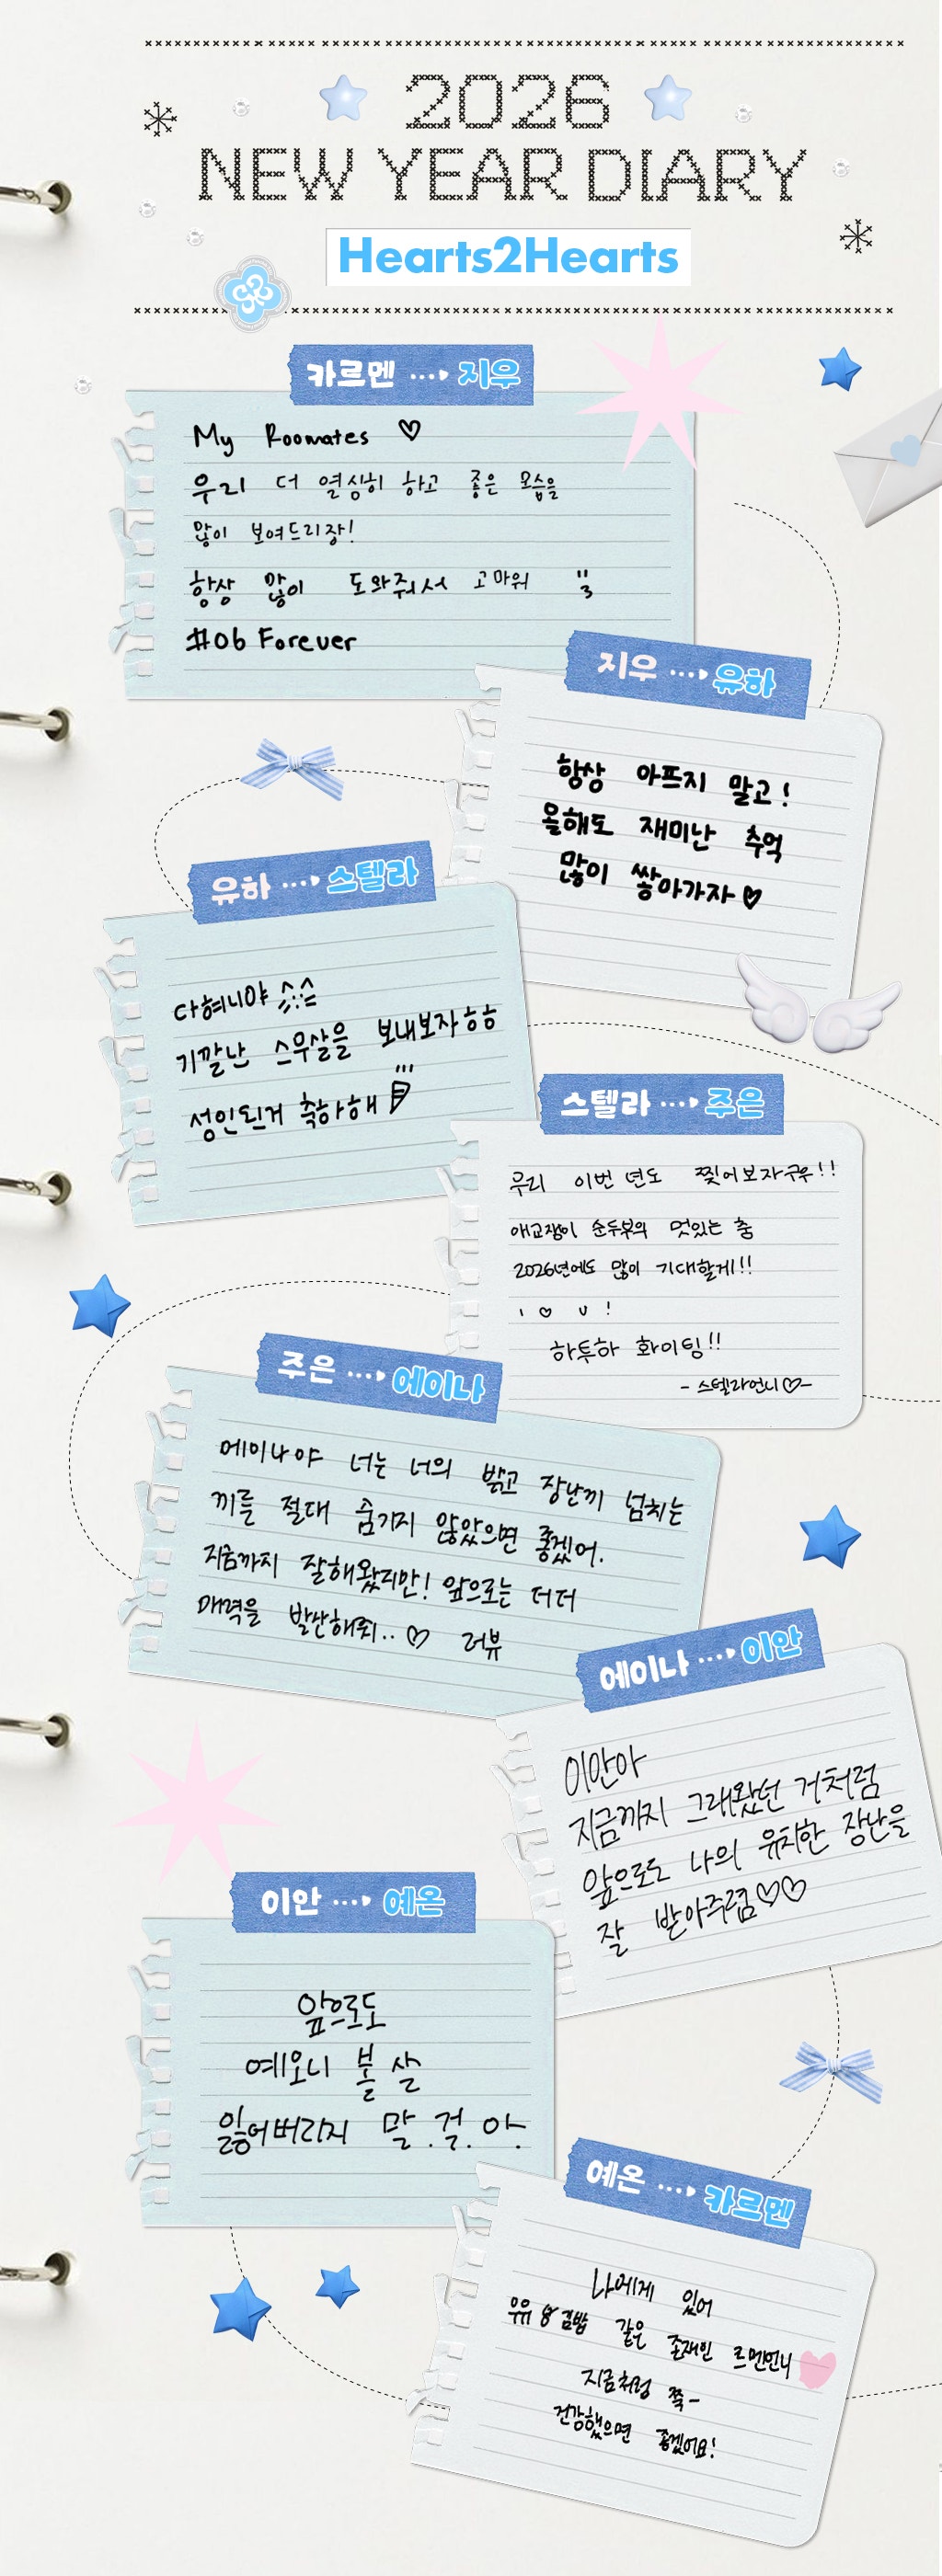 2026
NEW YEAR DIARY
Hearts2Hearts
카르멘 ····▸ 지우
My Roomates ♡
우리 더 열심히 하고 좋은 모습을
많이 보여드리장!
항상 많이 도와줘서 고마워
#06 Forever
지우 ····▸ 유하
항상 아프지 말고!
올해도 재미난 추억
많이 쌓아가자♡
유하 ····▸ 스텔라
다혀니야
기깔난 스무살을 보내보자ㅎㅎ
성인된거 축하해
스텔라 ····▸ 주은
우리 이번 년도 찢어보자구우!!
애교쟁이 순두부의 멋있는 춤
2026년에도 많이 기대할게!!
I ♡ U !
하투하 화이팅!!
- 스텔라언니♡-
주은 ····▸ 에이나
에이나야 너는 너의 밝고 장난끼 넘치는
끼를 절대 숨기지 않았으면 좋겠어.
지금까지 잘해왔지만! 앞으로는 더더
매력을 발산해줘..♡ 러뷰
에이나 ····▸ 이안
이안아
지금까지 그래왔던 거처럼
앞으로도 나의 유치한 장난을
잘 받아주렴♡♡
이안 ····▸ 예온
앞으로도
예오니 볼 살
잃어버리지 말.걸.아.
예온 ····▸ 카르멘
나에게 있어
우유 & 김밥 같은 존재인 르멘언니
지금처럼 쭉-
건강했으면 좋겠어요!